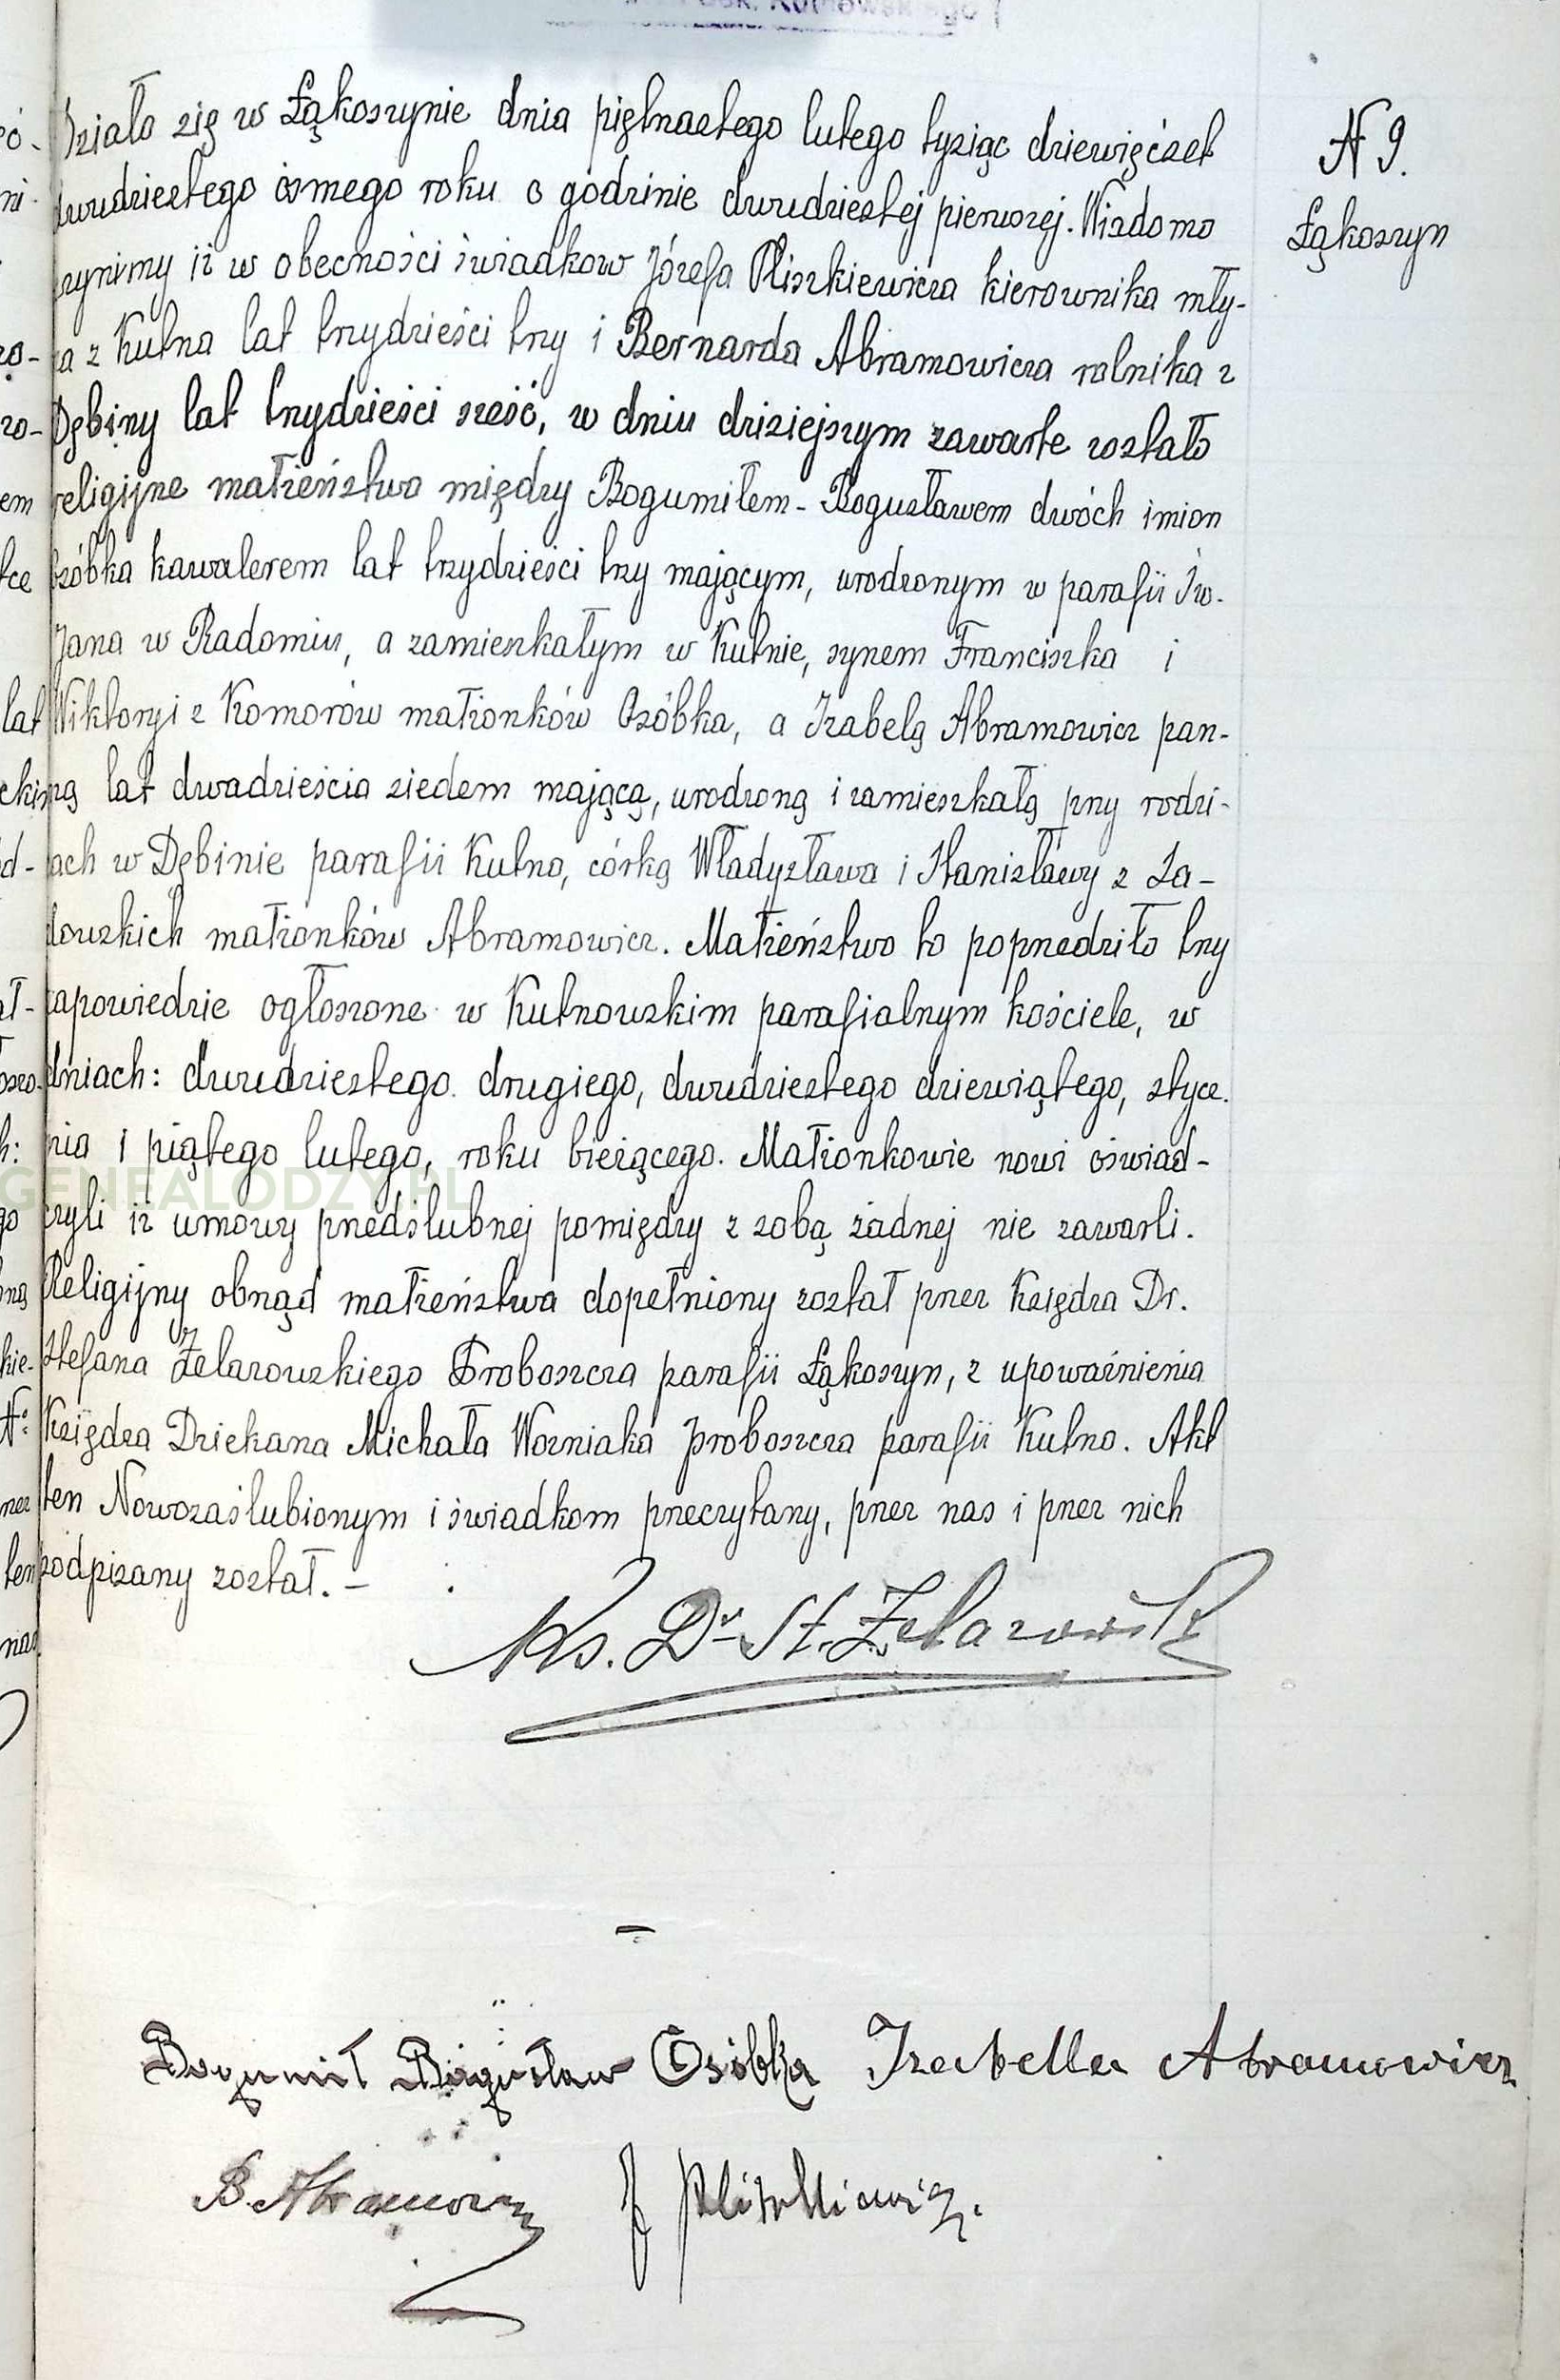 N 9.
Łąkoszyn
Działo się w Łąkoszynie dnia piętnastego lutego tysiąc dziewięćset
dwudziestego ósmego roku o godzinie dwudziestej pierwszej. Wiadomo
czynimy iż w obecności świadków Józefa Pliszkiewicza kierownika mły-
na z Kutna lat trzydzieści trzy i Bernarda Abramowicza rolnika z
Dębiny lat trzydzieści sześć, w dniu dzisiejszym zawarte zostało
religijne małżeństwo między Bogumiłem-Bogusławem dwóch imion
Osóbka kawalerem lat trzydzieści trzy mającym, urodzonym w parafii Św.
Jana w Radomiu, a zamieszkałym w Kutnie, synem Franciszka i
Wiktoryi z Komorów małżonków Osóbka, a Izabelą Abramowicz pan-
ną lat dwadzieścia siedem mającą, urodzoną i zamieszkałą przy rodzi-
cach w Dębinie parafii Kutno, córką Władysława i Stanisławy z Sa-
dowskich małżonków Abramowicz. Małżeństwo to poprzedziło trzy
zapowiedzie ogłoszone w Kutnowskim parafialnym kościele, w
dniach: dwudziestego drugiego, dwudziestego dziewiątego, stycz.
nia i piątego lutego, roku bieżącego. Małżonkowie nowi oświad-
czyli iż umowy przedślubnej pomiędzy z sobą żadnej nie zawarli.
Religijny obrząd małżeństwa dopełniony został przez Księdza Dr.
Stefana Żelazowskiego Proboszcza parafii Łąkoszyn, z upoważnienia
Księdza Dziekana Michała Wozniaka proboszcza parafii Kutno. Akt
ten Nowozaślubionym i świadkom przeczytany, przez nas i przez nich
podpisany został. –
Ks. Dr St. Żelazowski
Bogumił Bogusław Osóbka Izabella Abramowicz
B. Abramowicz J Pliszkiewicz.
GENEALODZY.PL